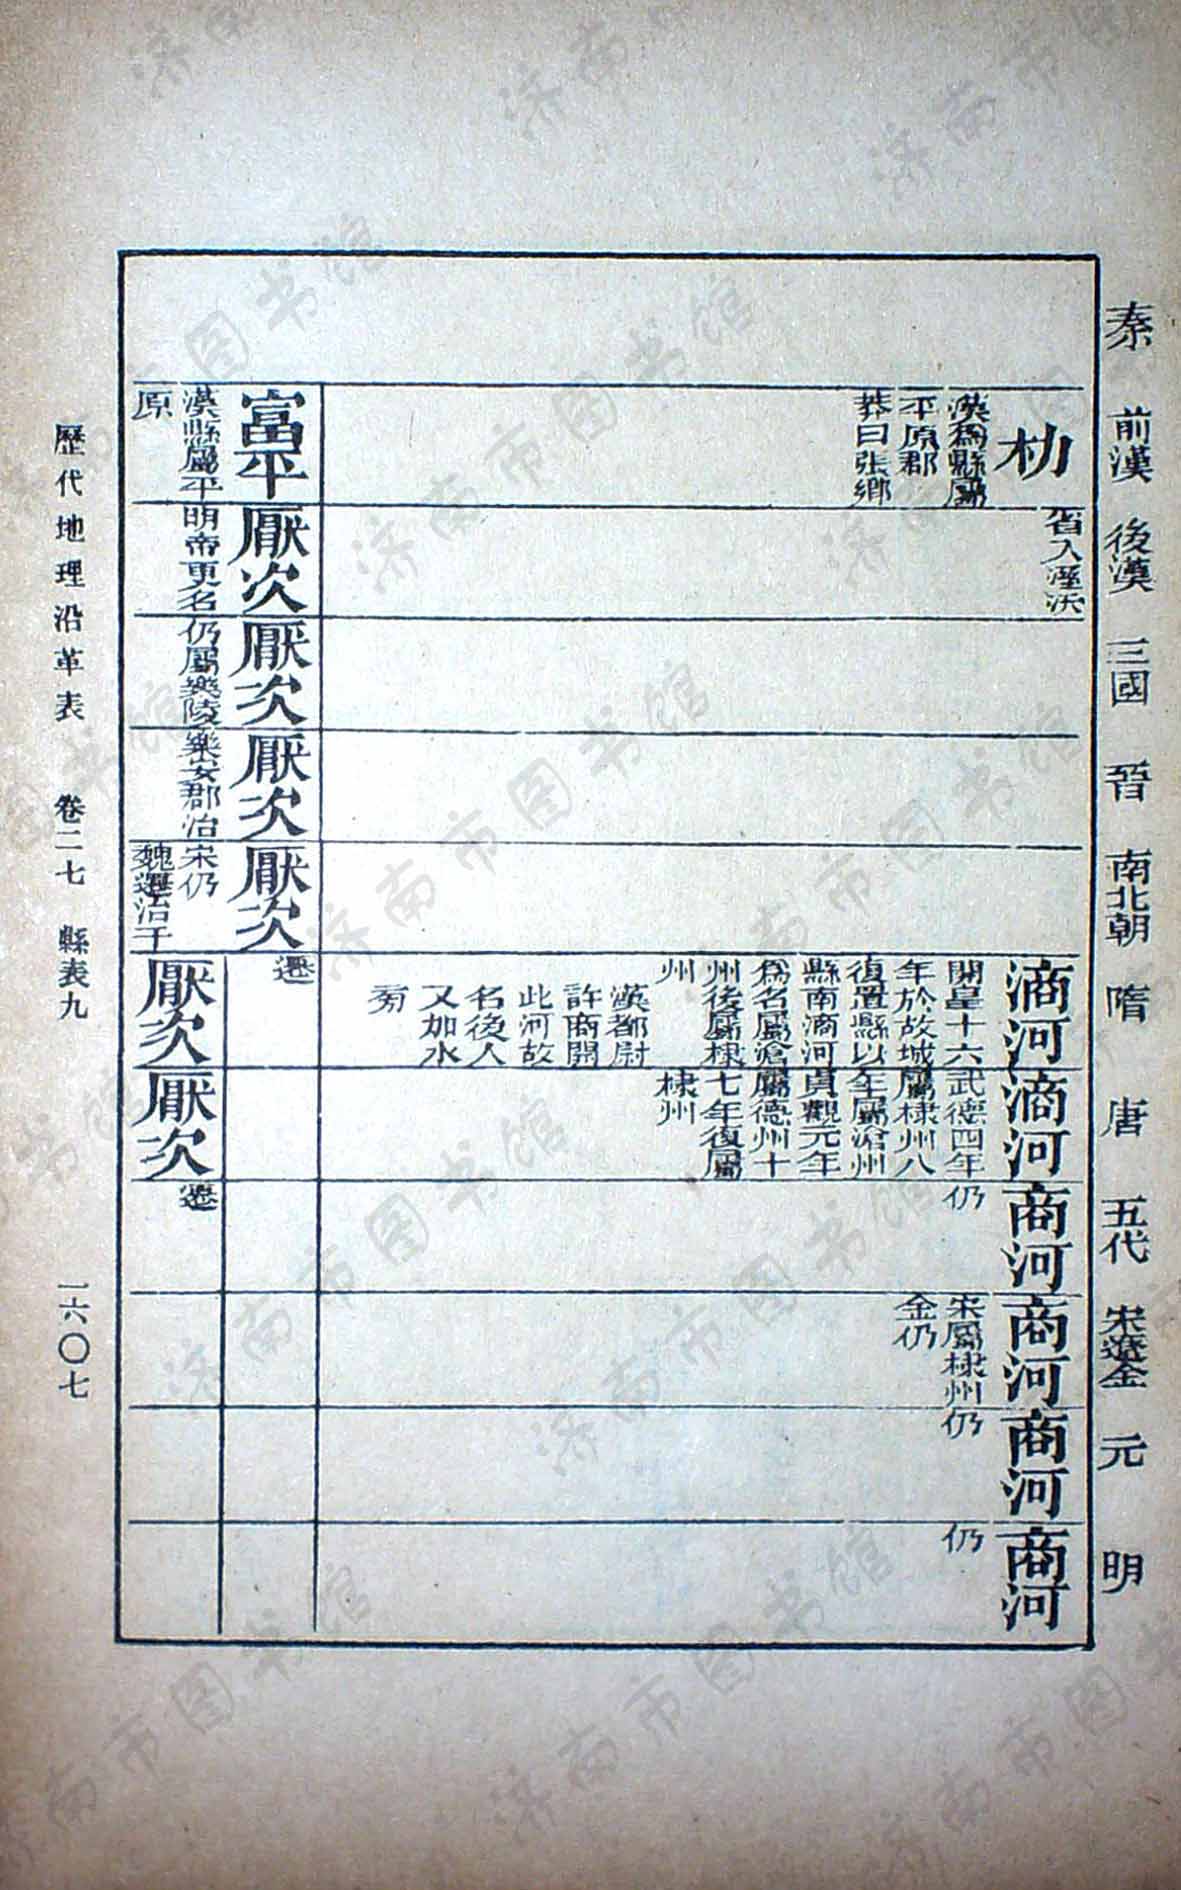 秦
前漢
後漢
三國
晉
南北朝
隋
唐
五代
宋遼金
元
明
朸
漢爲縣屬
平原郡
莽曰張鄉
省入溼沃
滳河
開皇十六
年於故城
復置縣以
縣南滳河
爲名屬滄
州後屬棣
州
漢都尉
許商開
此河故
名後人
又加水
旁
滳河
武德四年
屬棣州八
年屬滄州
貞觀元年
屬德州十
七年復屬
棣州
商河
仍
商河
宋屬棣州
金仍
商河
仍
商河
仍
富平
漢縣屬平
原
厭次
明帝更名
厭次
仍屬樂陵
厭次
樂安郡治
厭次
宋仍
魏遷治干
遷
厭次
厭次
遷
歷代地理沿革表 卷二七 縣表九 一六〇七
济南市图书馆